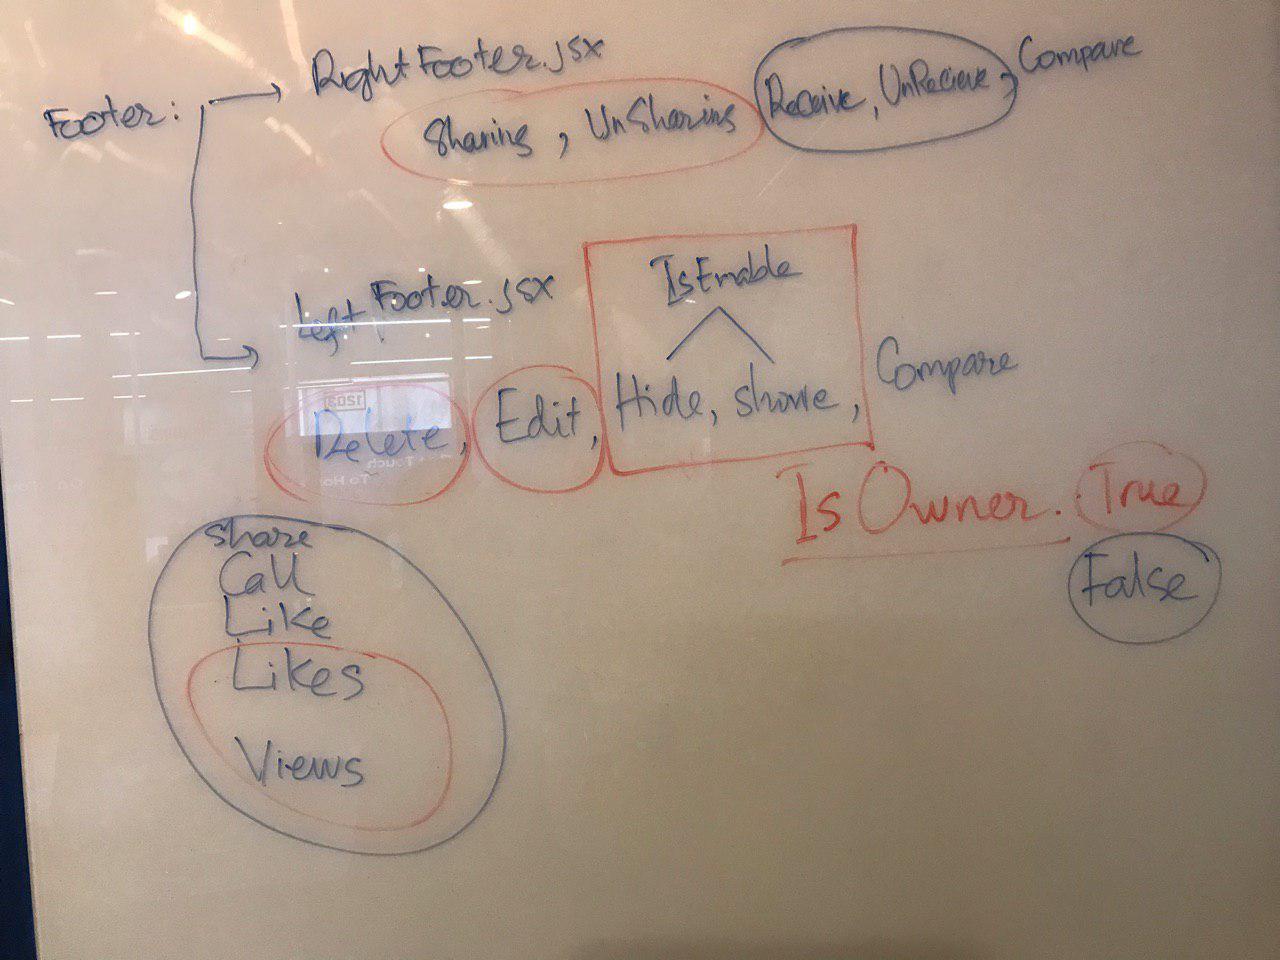 Footer:
RightFooter.jsx
Sharing, UnSharing
Receive, UnRecieve,
Compare
Left Footer.jsx
IsEnable
Delete, Edit, Hide, showe,
Compare
IsOwner. True
False
share
Call
Like
Likes
Views